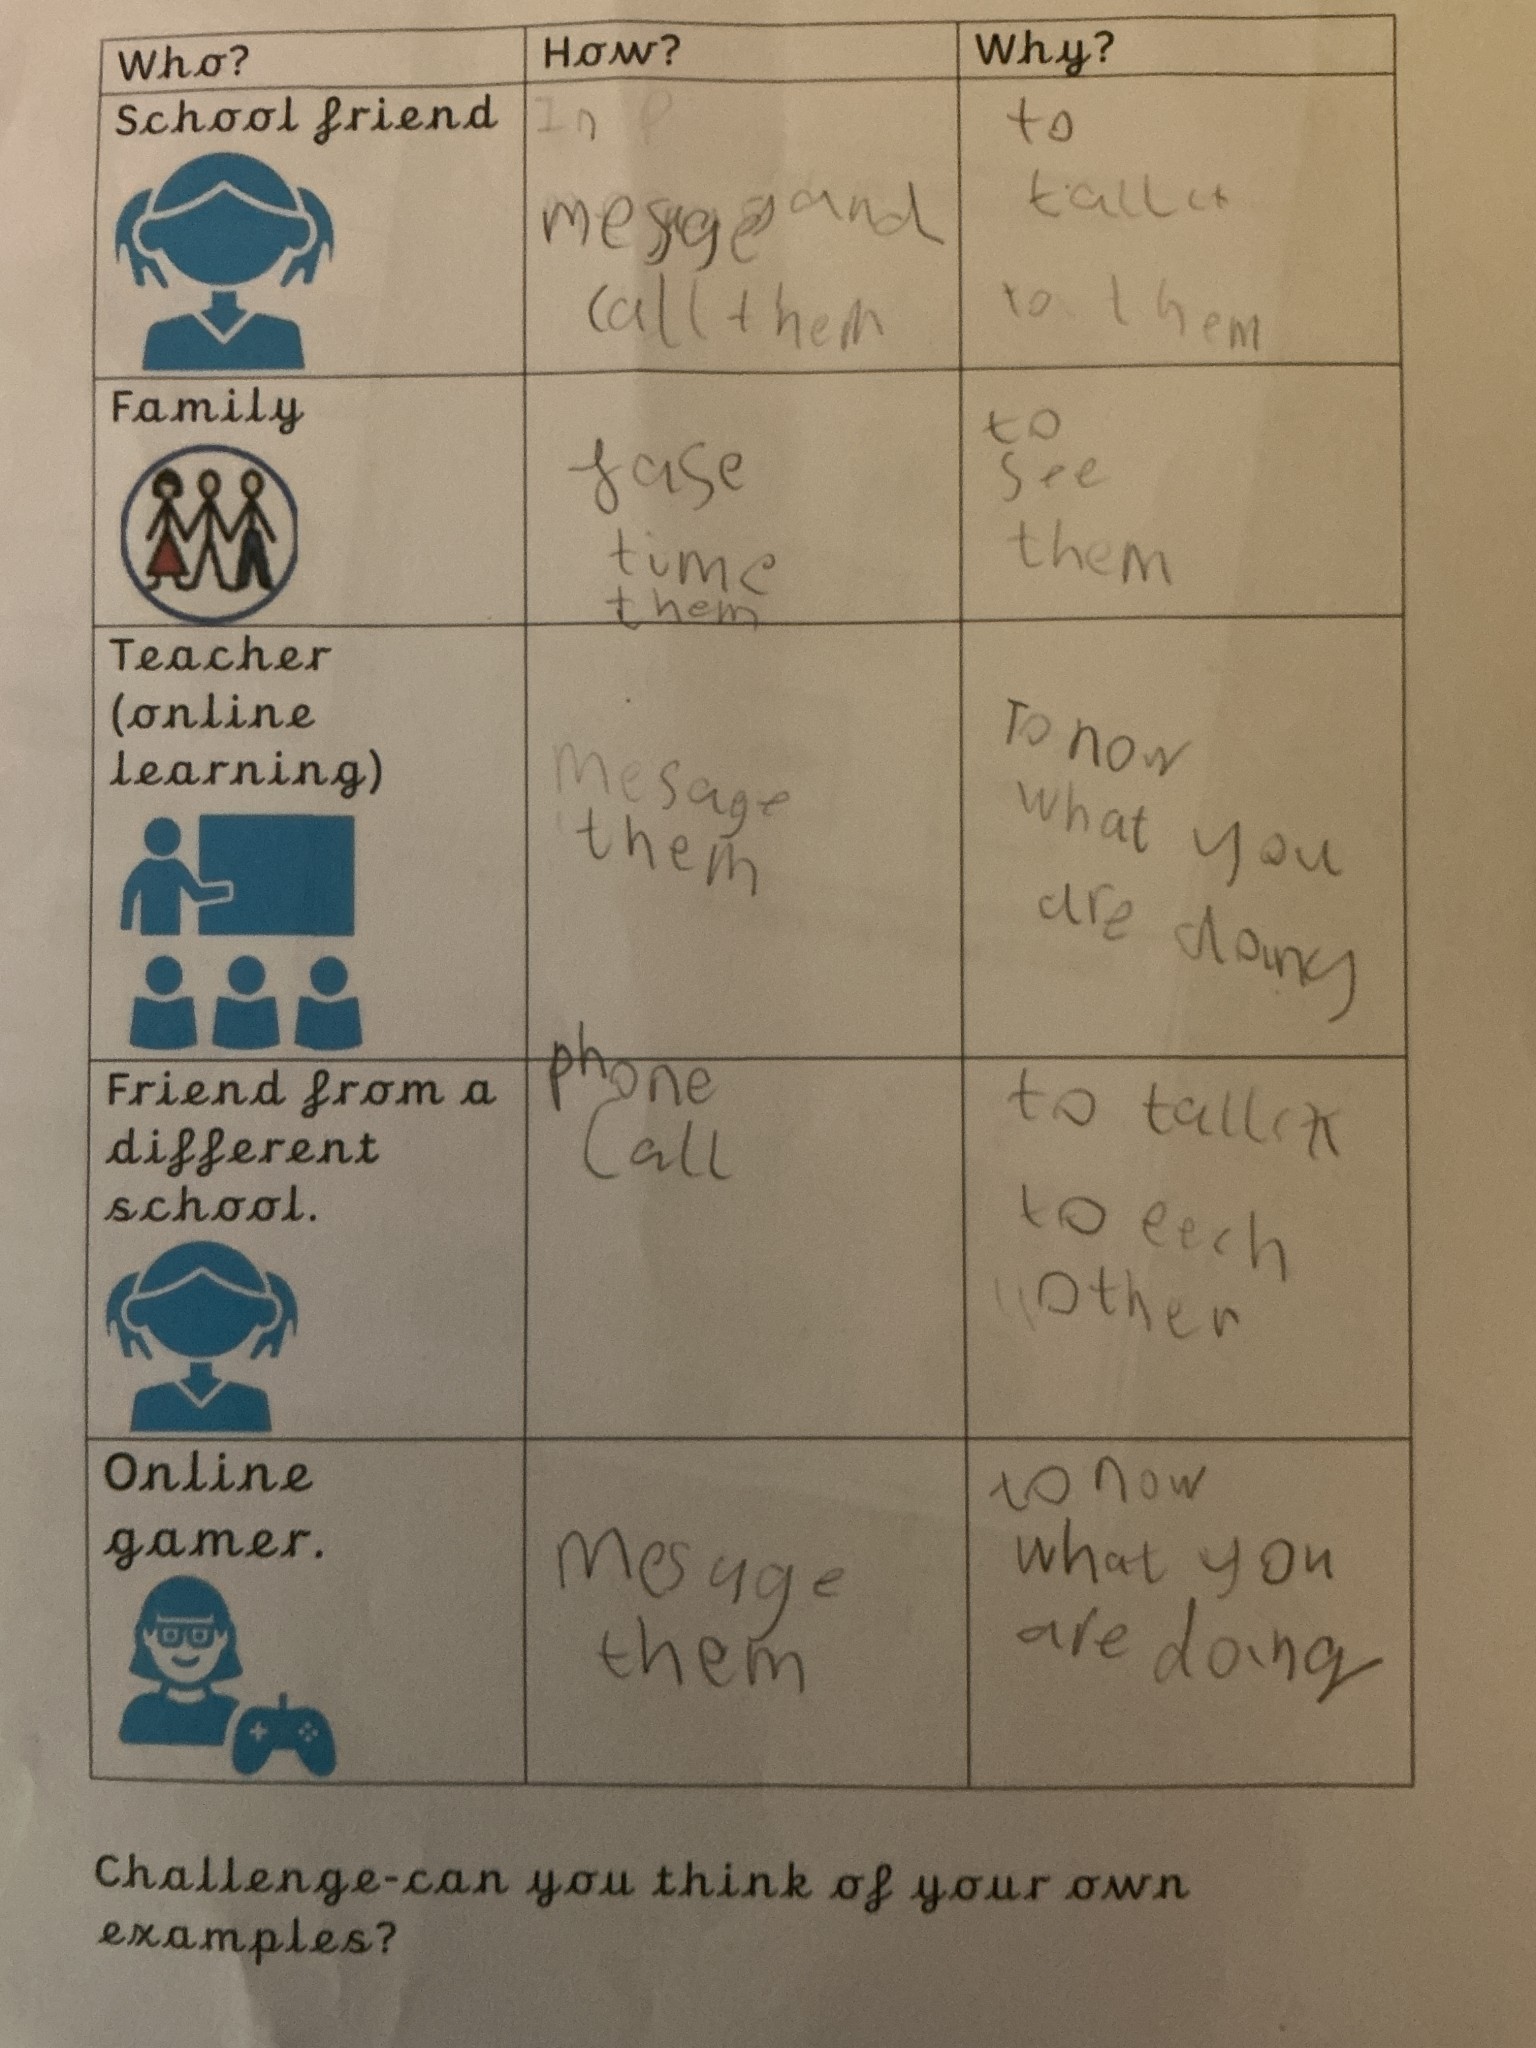 Who?
How?
Why?
School friend
In P
mesage and
call them
to
tallk
to them
Family
fase
time
them
to
see
them
Teacher
(online
learning)
mesage
them
To now
what you
are doing
Friend from a
different
school.
phone
call
to tallk
to eech
other
Online
gamer.
Mesage
them
to now
what you
are doing
Challenge-can you think of your own
examples?